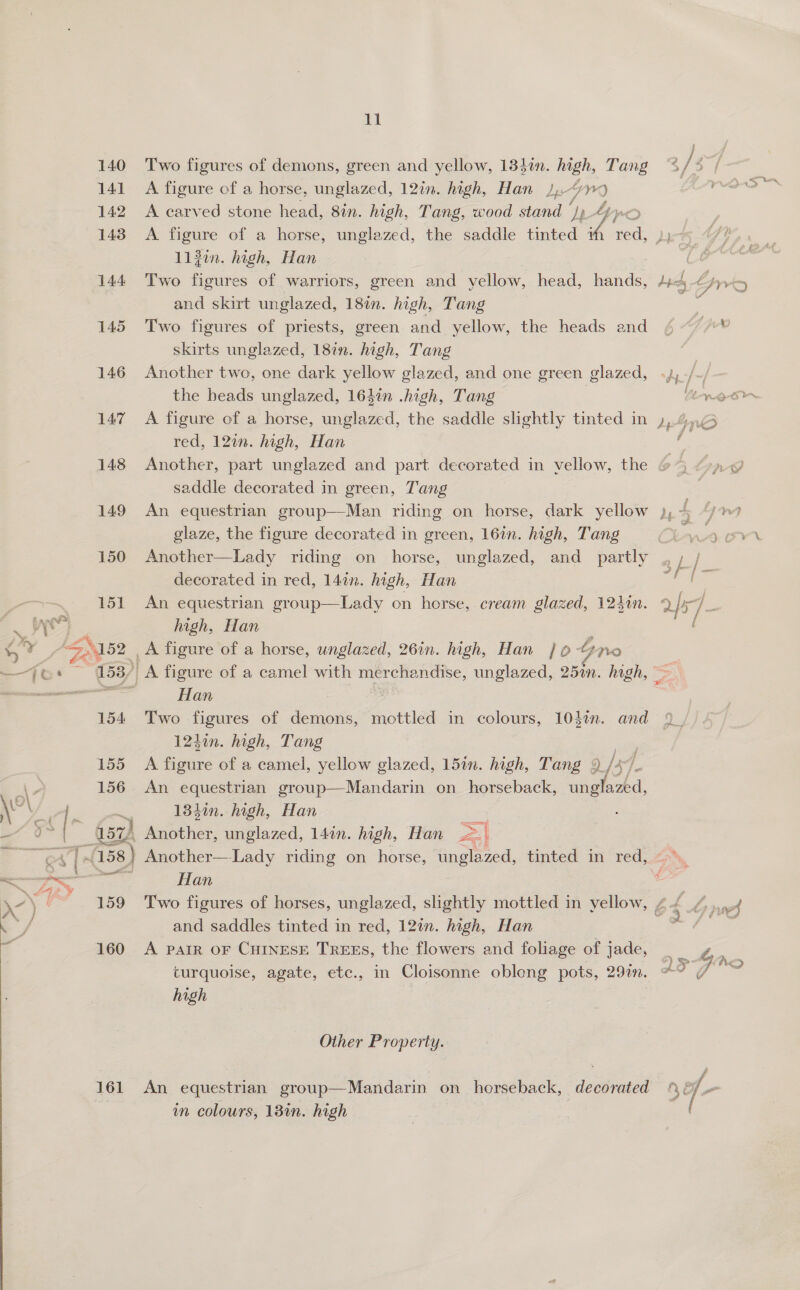 11
140 Two figures of demons, green and yellow, 13½in. high, Tang
141 A figure of a horse, unglazed, 12in. high, Han
142 A carved stone head, 8in. high, Tang, wood stand
143 A figure of a horse, unglazed, the saddle tinted in red,
11¾in. high, Han
144 Two figures of warriors, green and yellow, head, hands,
and skirt unglazed, 18in. high, Tang
145 Two figures of priests, green and yellow, the heads and
skirts unglazed, 18in. high, Tang
146 Another two, one dark yellow glazed, and one green glazed,
the heads unglazed, 16½in .high, Tang
147 A figure of a horse, unglazed, the saddle slightly tinted in
red, 12in. high, Han
148 Another, part unglazed and part decorated in yellow, the
saddle decorated in green, Tang
149 An equestrian group—Man riding on horse, dark yellow
glaze, the figure decorated in green, 16in. high, Tang
150 Another—Lady riding on horse, unglazed, and partly
decorated in red, 14in. high, Han
151 An equestrian group—Lady on horse, cream glazed, 12½in.
high, Han
152 A figure of a horse, unglazed, 26in. high, Han
153 A figure of a camel with merchandise, unglazed, 25in. high,
Han
154 Two figures of demons, mottled in colours, 10½in. and
12½in. high, Tang
155 A figure of a camel, yellow glazed, 15in. high, Tang
156 An equestrian group—Mandarin on horseback, unglazed,
13½in. high, Han
157 Another, unglazed, 14in. high, Han
158 Another—Lady riding on horse, unglazed, tinted in red,
Han
159 Two figures of horses, unglazed, slightly mottled in yellow,
and saddles tinted in red, 12in. high, Han
160 A PAIR OF CHINESE TREES, the flowers and foliage of jade,
turquoise, agate, etc., in Cloisonne oblong pots, 29in.
high
Other Property.
161 An equestrian group—Mandarin on horseback, decorated
in colours, 13in. high